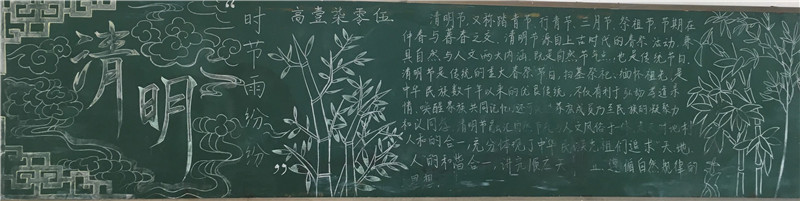 清明
“时节雨纷纷”
高壹柒零伍
清明节,又称踏青节、行青节、三月节、祭祖节,节期在
仲春与暮春之交。清明节源自上古时代的春祭活动,兼
具自然与人文两大内涵,既是自然节气点,也是传统节日,
清明节是传统的重大春祭节日,扫墓祭祀、缅怀祖先,是
中华民族数千年以来的优良传统,不仅有利于弘扬孝道亲
情、唤醒家族共同记忆,还可 家族成员乃至民族的凝聚力
和认同感。清明节 人文风俗于一
人和的合一,充分体现了中华民族先祖们追求“天、地、
人”的和谐合一,讲究顺应天 遵循自然规律的
思想。